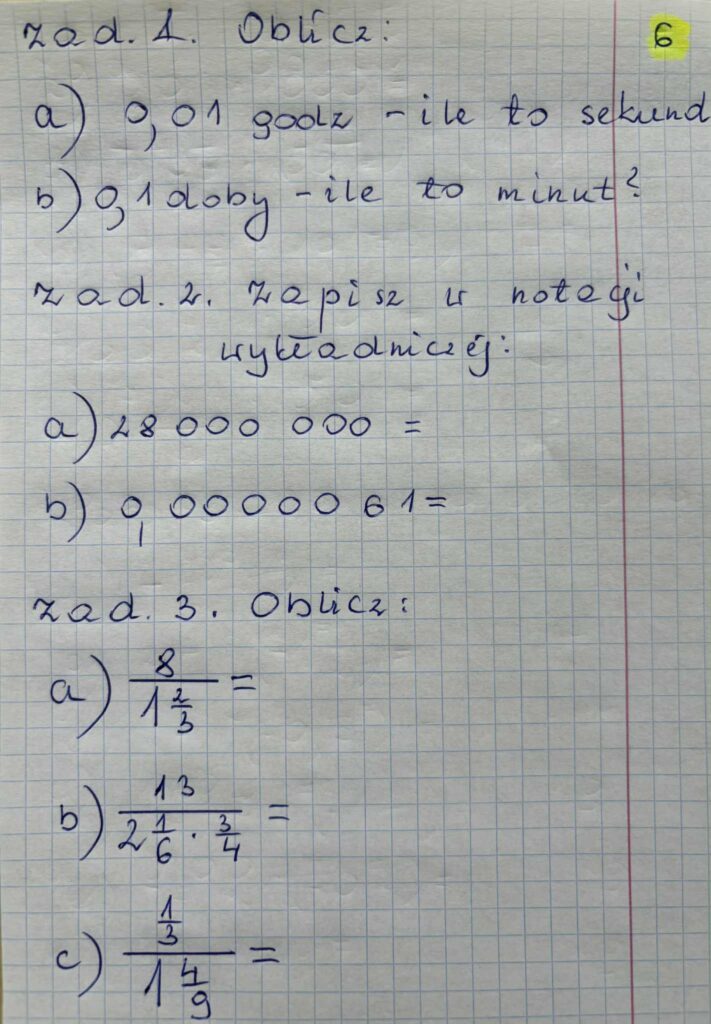 zad. 1. Oblicz: 6
a) 0,01 godz - ile to sekund
b) 0,1 doby - ile to minut?
zad. 2. Zapisz w notacji
wykładniczej:
a) 28 000 000 =
b) 0,00000061 =
zad. 3. Oblicz:
a) \frac{8}{1\frac{2}{3}} =
b) \frac{13}{2\frac{1}{6} \cdot \frac{3}{4}} =
c) \frac{\frac{1}{3}}{1\frac{4}{9}} =